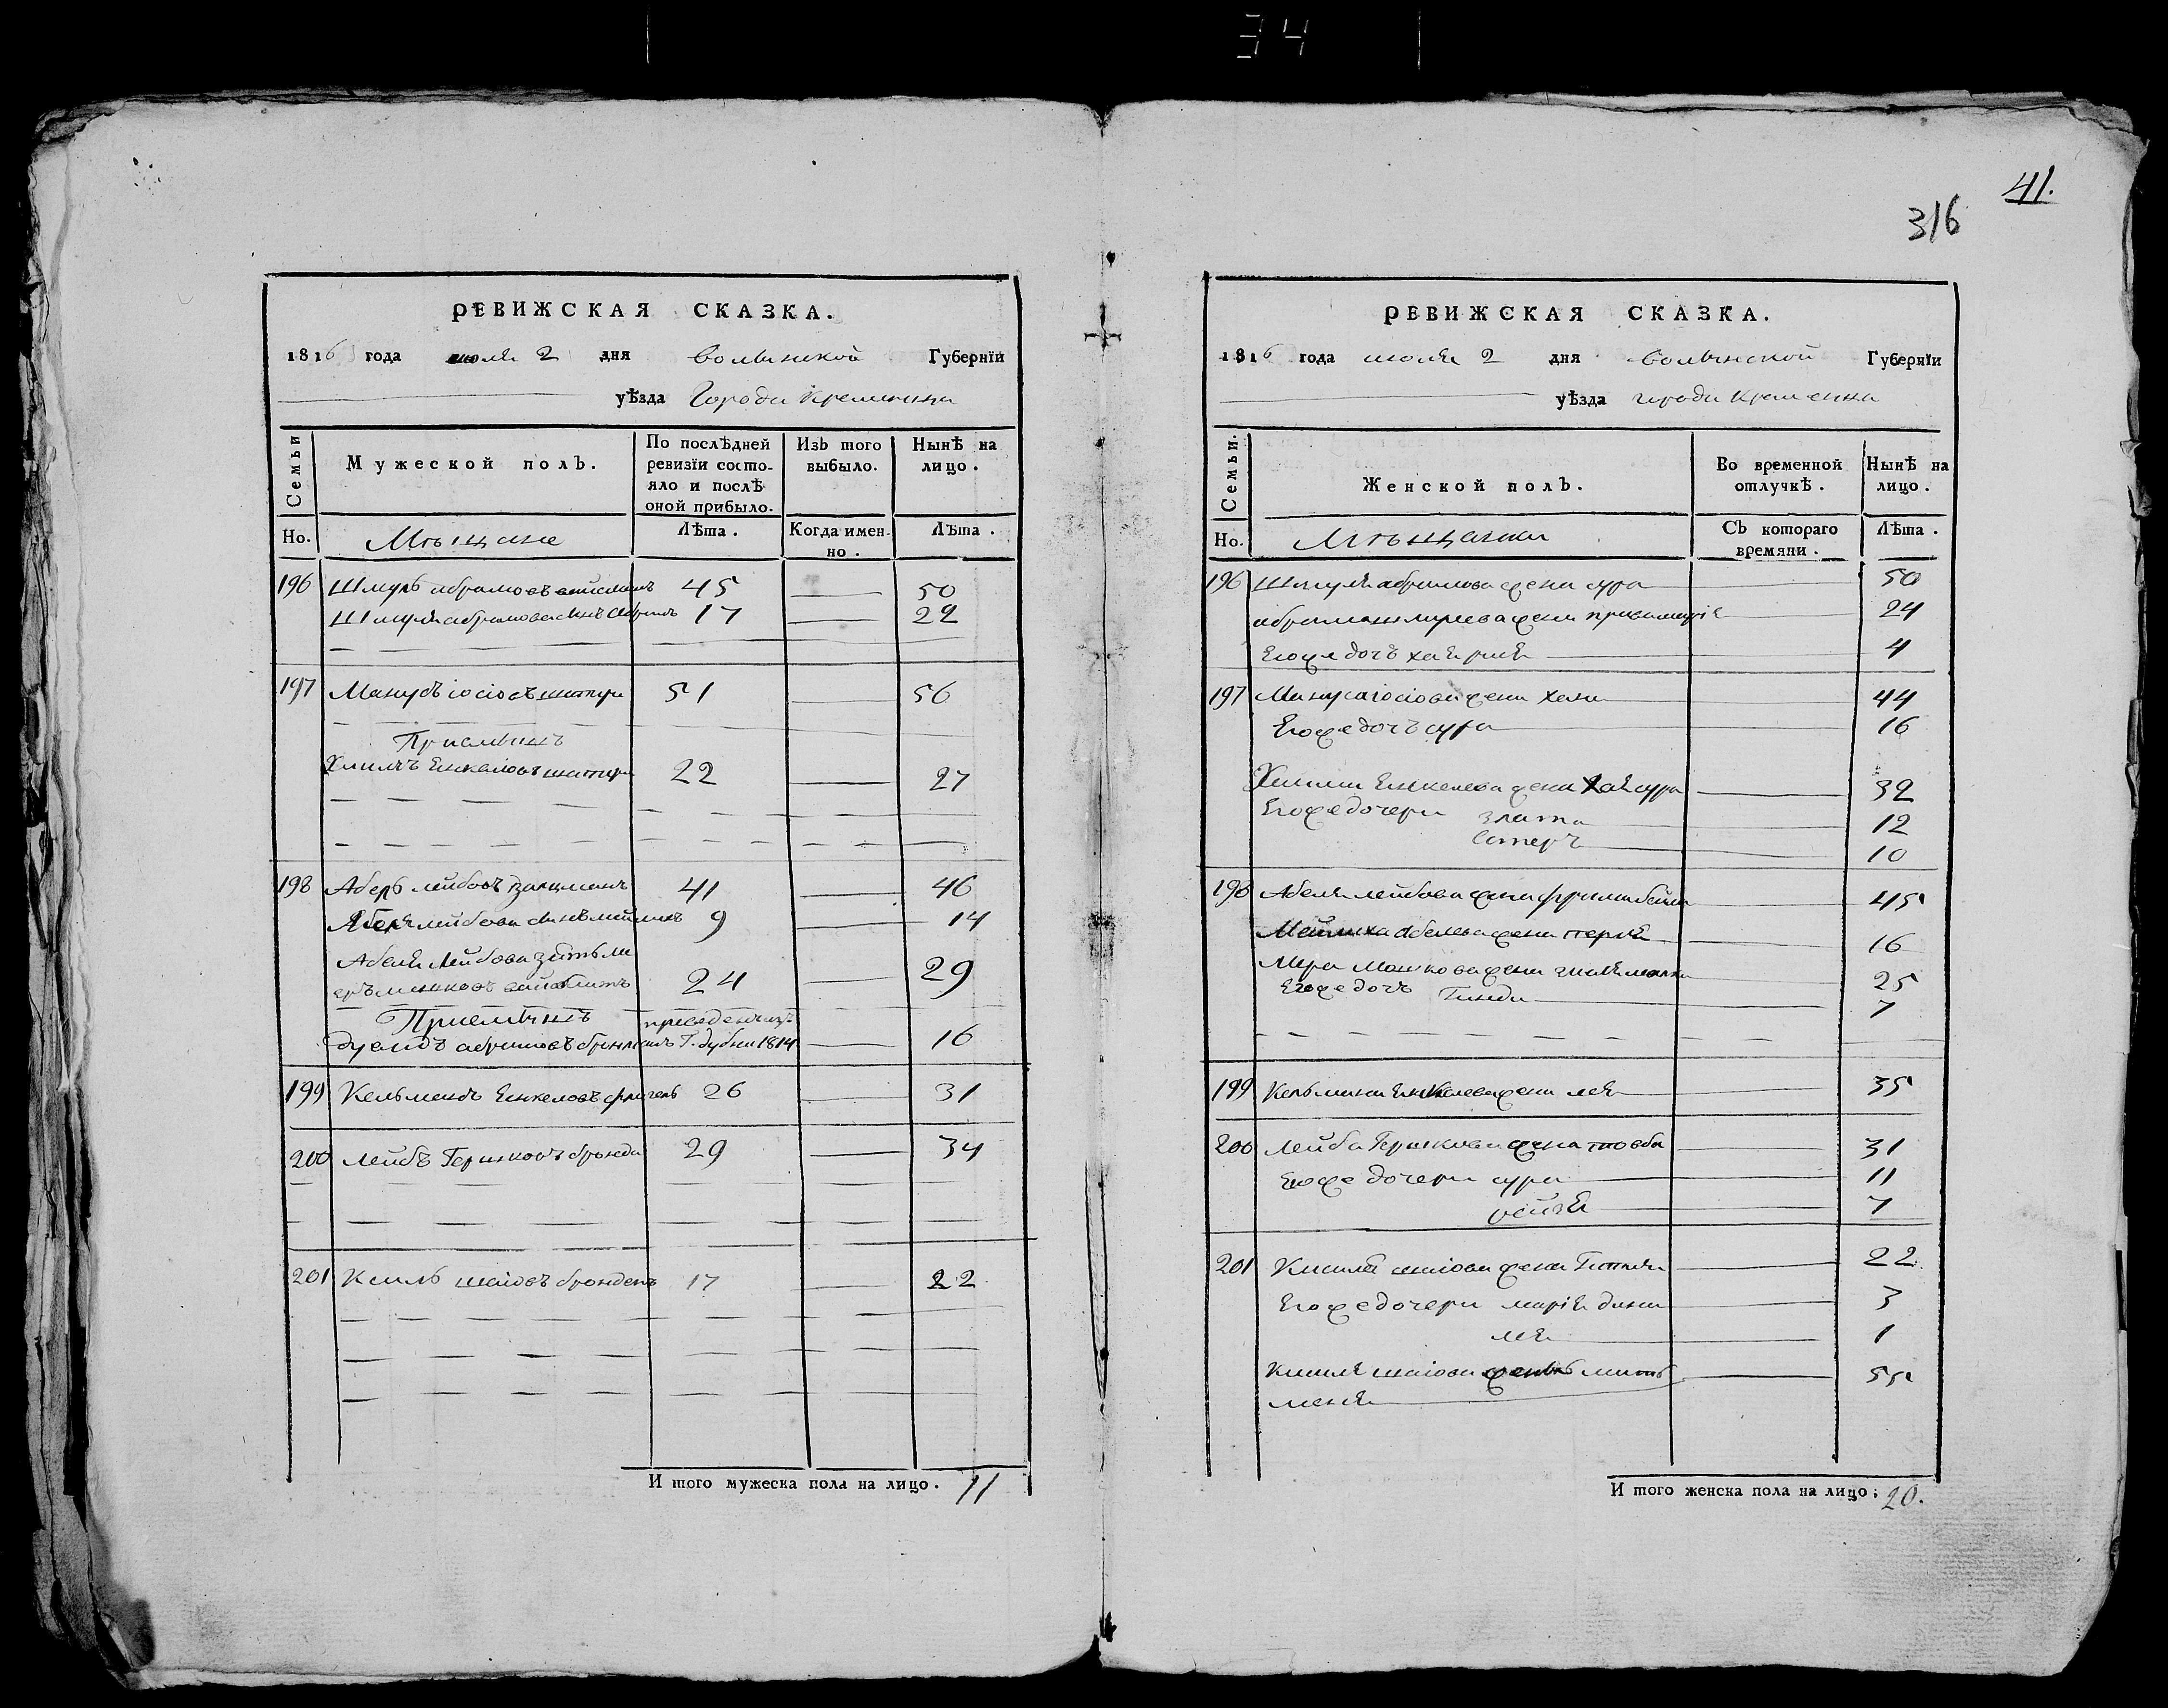 34
41.
316
РЕВИЖСКАЯ СКАЗКА.
1816 года июля 2 дня Волынской Губернїи
уѣзда Города Кременца
Семьи
Мужеской полъ.
По послѣдней ревизїи состо-
яло и послѣ
оной прибыло.
Изъ того
выбыло.
Нынѣ на
лицо.
Но.
Мѣщане
Лѣта.
Когда имен-
но.
Лѣта.
196 Шмуль абрамовъ 45 50
Шмуля абрамова сынъ абрамъ 17 22
197 Манусъ іосіовъ 51 56
Приемышъ
Хаимъ Енкеліовъ 22 27
198 Абель лейбовъ Зальцманъ 41 46
Абеля лейбова сынъ мейлихъ 9 14
Абеля Лейбова зять ме
еръ мошковъ 24 29
Приемышъ
абрамовъ Г. дубна 1814 16
199 Кельманъ Енкеловъ 26 31
200 Лейбъ Гершковъ бронда 29 34
201 Кисиль шаіовъ 17 22
И того мужеска пола на лицо. 11
РЕВИЖСКАЯ СКАЗКА.
1816 года июля 2 дня Волынской Губернїи
уѣзда города Кременца
Семьи.
Женской полъ.
Во временной
отлучкѣ.
Нынѣ на
лицо.
Но.
Мѣщанки
Съ котораго
времяни.
Лѣта.
196 Шмуля абрамова жена сура 50
абрама шмулева жена 24
Егоже дочь 4
197 Мануса іосіова жена хана 44
Егоже дочь сура 16
Хаима Енкелева жена хаЯсура 32
Егоже дочери злата 12
Естеръ 10
198 Абеля лейбова жена фрима бейла 45
Мейлиха абелева жена перля 16
Мера Мошкова жена 25
Егоже дочь Гинда 7
199 Кельмана Енкелева жена лея 35
200 Лейба Гершкова жена товба 31
Егоже дочери сура 11
рейзя 7
201 Кисиля шаіова жена Гитля 22
Егоже дочери марія дина 3
лея 1
Кисиля шаіова мать 55
меня
И того женска пола на лицо; 20.